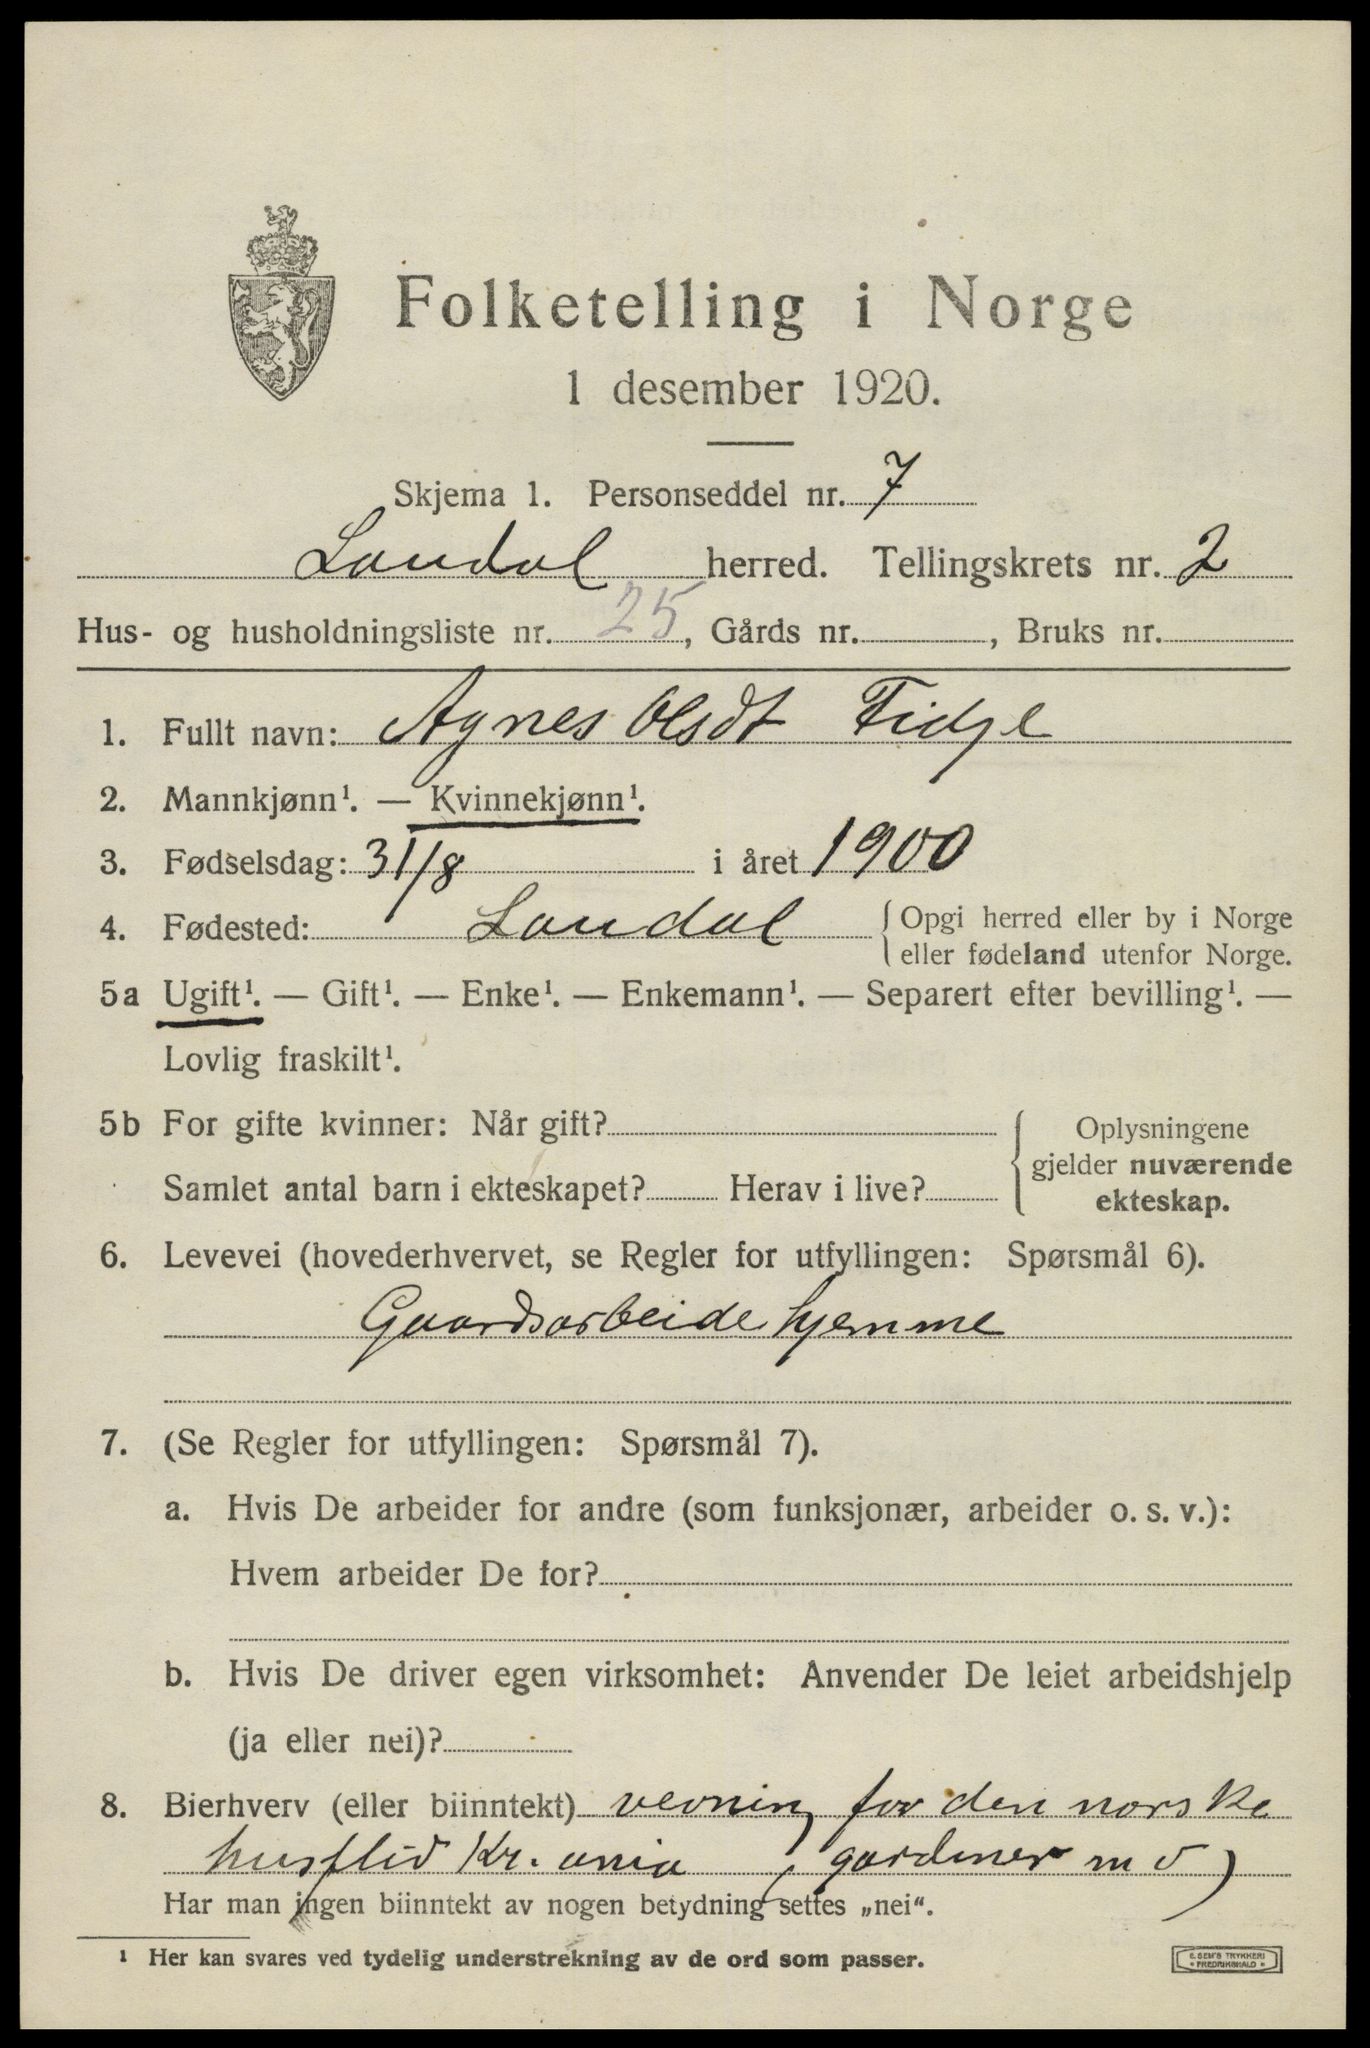 Folketelling i Norge
1 desember 1920.
Skjema 1. Personseddel nr. 7
Laudal herred. Tellingskrets nr. 2
Hus- og husholdningsliste nr. 25, Gårds nr. , Bruks nr.
1. Fullt navn: Agnes Olsdt Fidje
2. Mannkjønn¹. — Kvinnekjønn¹.
3. Fødselsdag: 31/8 i året 1900
4. Fødested: Laudal { Opgi herred eller by i Norge
eller fødeland utenfor Norge.
5a Ugift¹. — Gift¹. — Enke¹. — Enkemann¹. — Separert efter bevilling¹. —
Lovlig fraskilt¹.
5b For gifte kvinner: Når gift? { Oplysningene
gjelder nuværende
Samlet antal barn i ekteskapet? Herav i live? ekteskap.
6. Levevei (hovederhvervet, se Regler for utfyllingen: Spørsmål 6).
Gaardsarbeide hjemme
7. (Se Regler for utfyllingen: Spørsmål 7).
a. Hvis De arbeider for andre (som funksjonær, arbeider o. s. v.):
Hvem arbeider De for?
b. Hvis De driver egen virksomhet: Anvender De leiet arbeidshjelp
(ja eller nei)?
8. Bierhverv (eller biinntekt) vevning for den norske
husflid Kr.ania (gardiner m v)
Har man ingen biinntekt av nogen betydning settes „nei“.
¹ Her kan svares ved tydelig understrekning av de ord som passer.
E. SEM'S TRYKKERI
• FREDRIKSHALD •